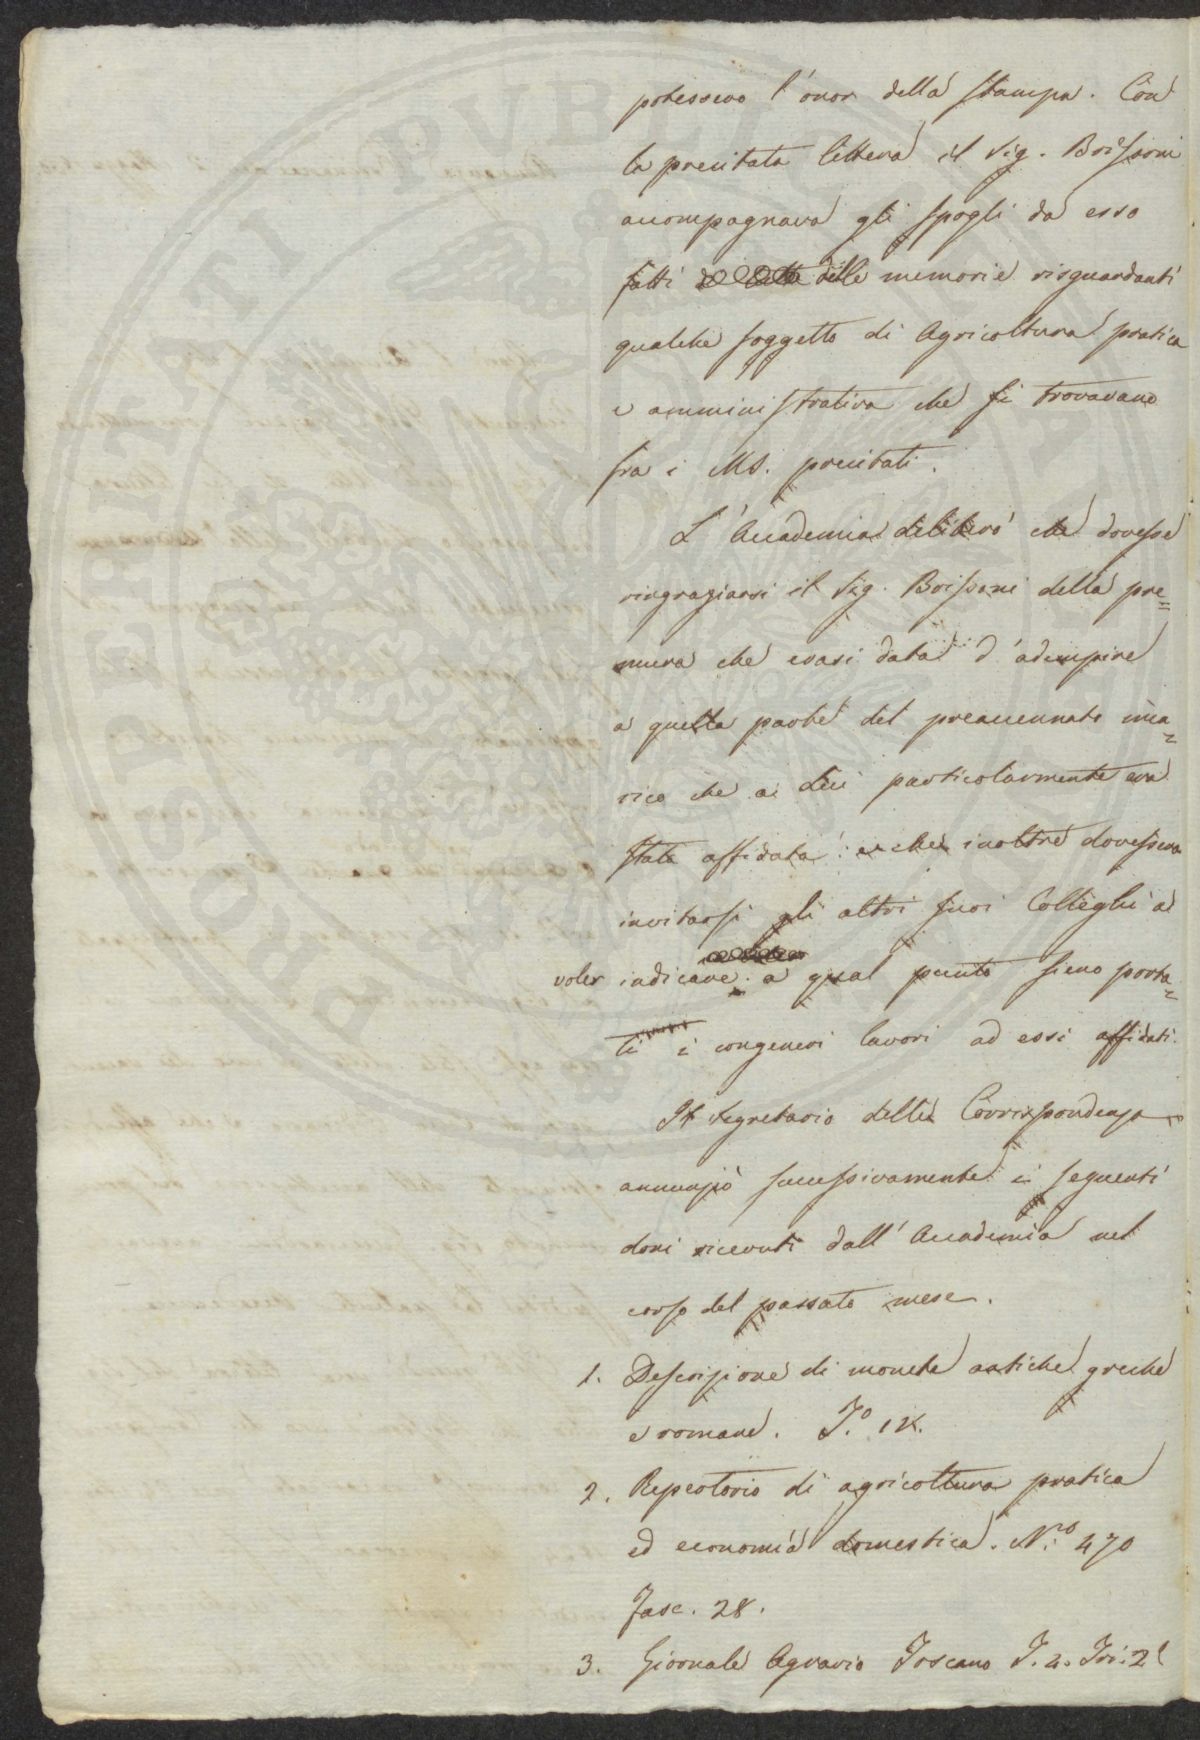 potessero l'onor della stampa. Con
la precitata lettera il Sig. Boissoni
accompagnava gli spogli da esso
fatti delle memorie risguardanti
qualche soggetto di Agricoltura pratica
e amministrativa che si trovavano
fra i MS. precitati.
L'Accademia deliberò che dovesse
ringraziarsi il Sig. Boissoni della pre=
mura che erasi data d'adempire
a quella parte del preaccennato inca=
rico che a lui particolarmente era
stata affidata: e che inoltre dovessero
invitarsi gli altri suoi Colleghi a
voler indicare a qual punto sieno porta=
ti i congeneri lavori ad essi affidati.
Il Segretario delle Corrispondenze
annunziò successivamente i seguenti
doni ricevuti dall'Accademia nel
corso del passato mese.
1. Descrizione di monete antiche greche
e romane. T.º IX.
2. Repertorio di agricoltura pratica
ed economia domestica. N.º 470
Fasc. 28.
3. Giornale Agrario Toscano T. 2. Tri: 2.
POPVLI PVBLICO